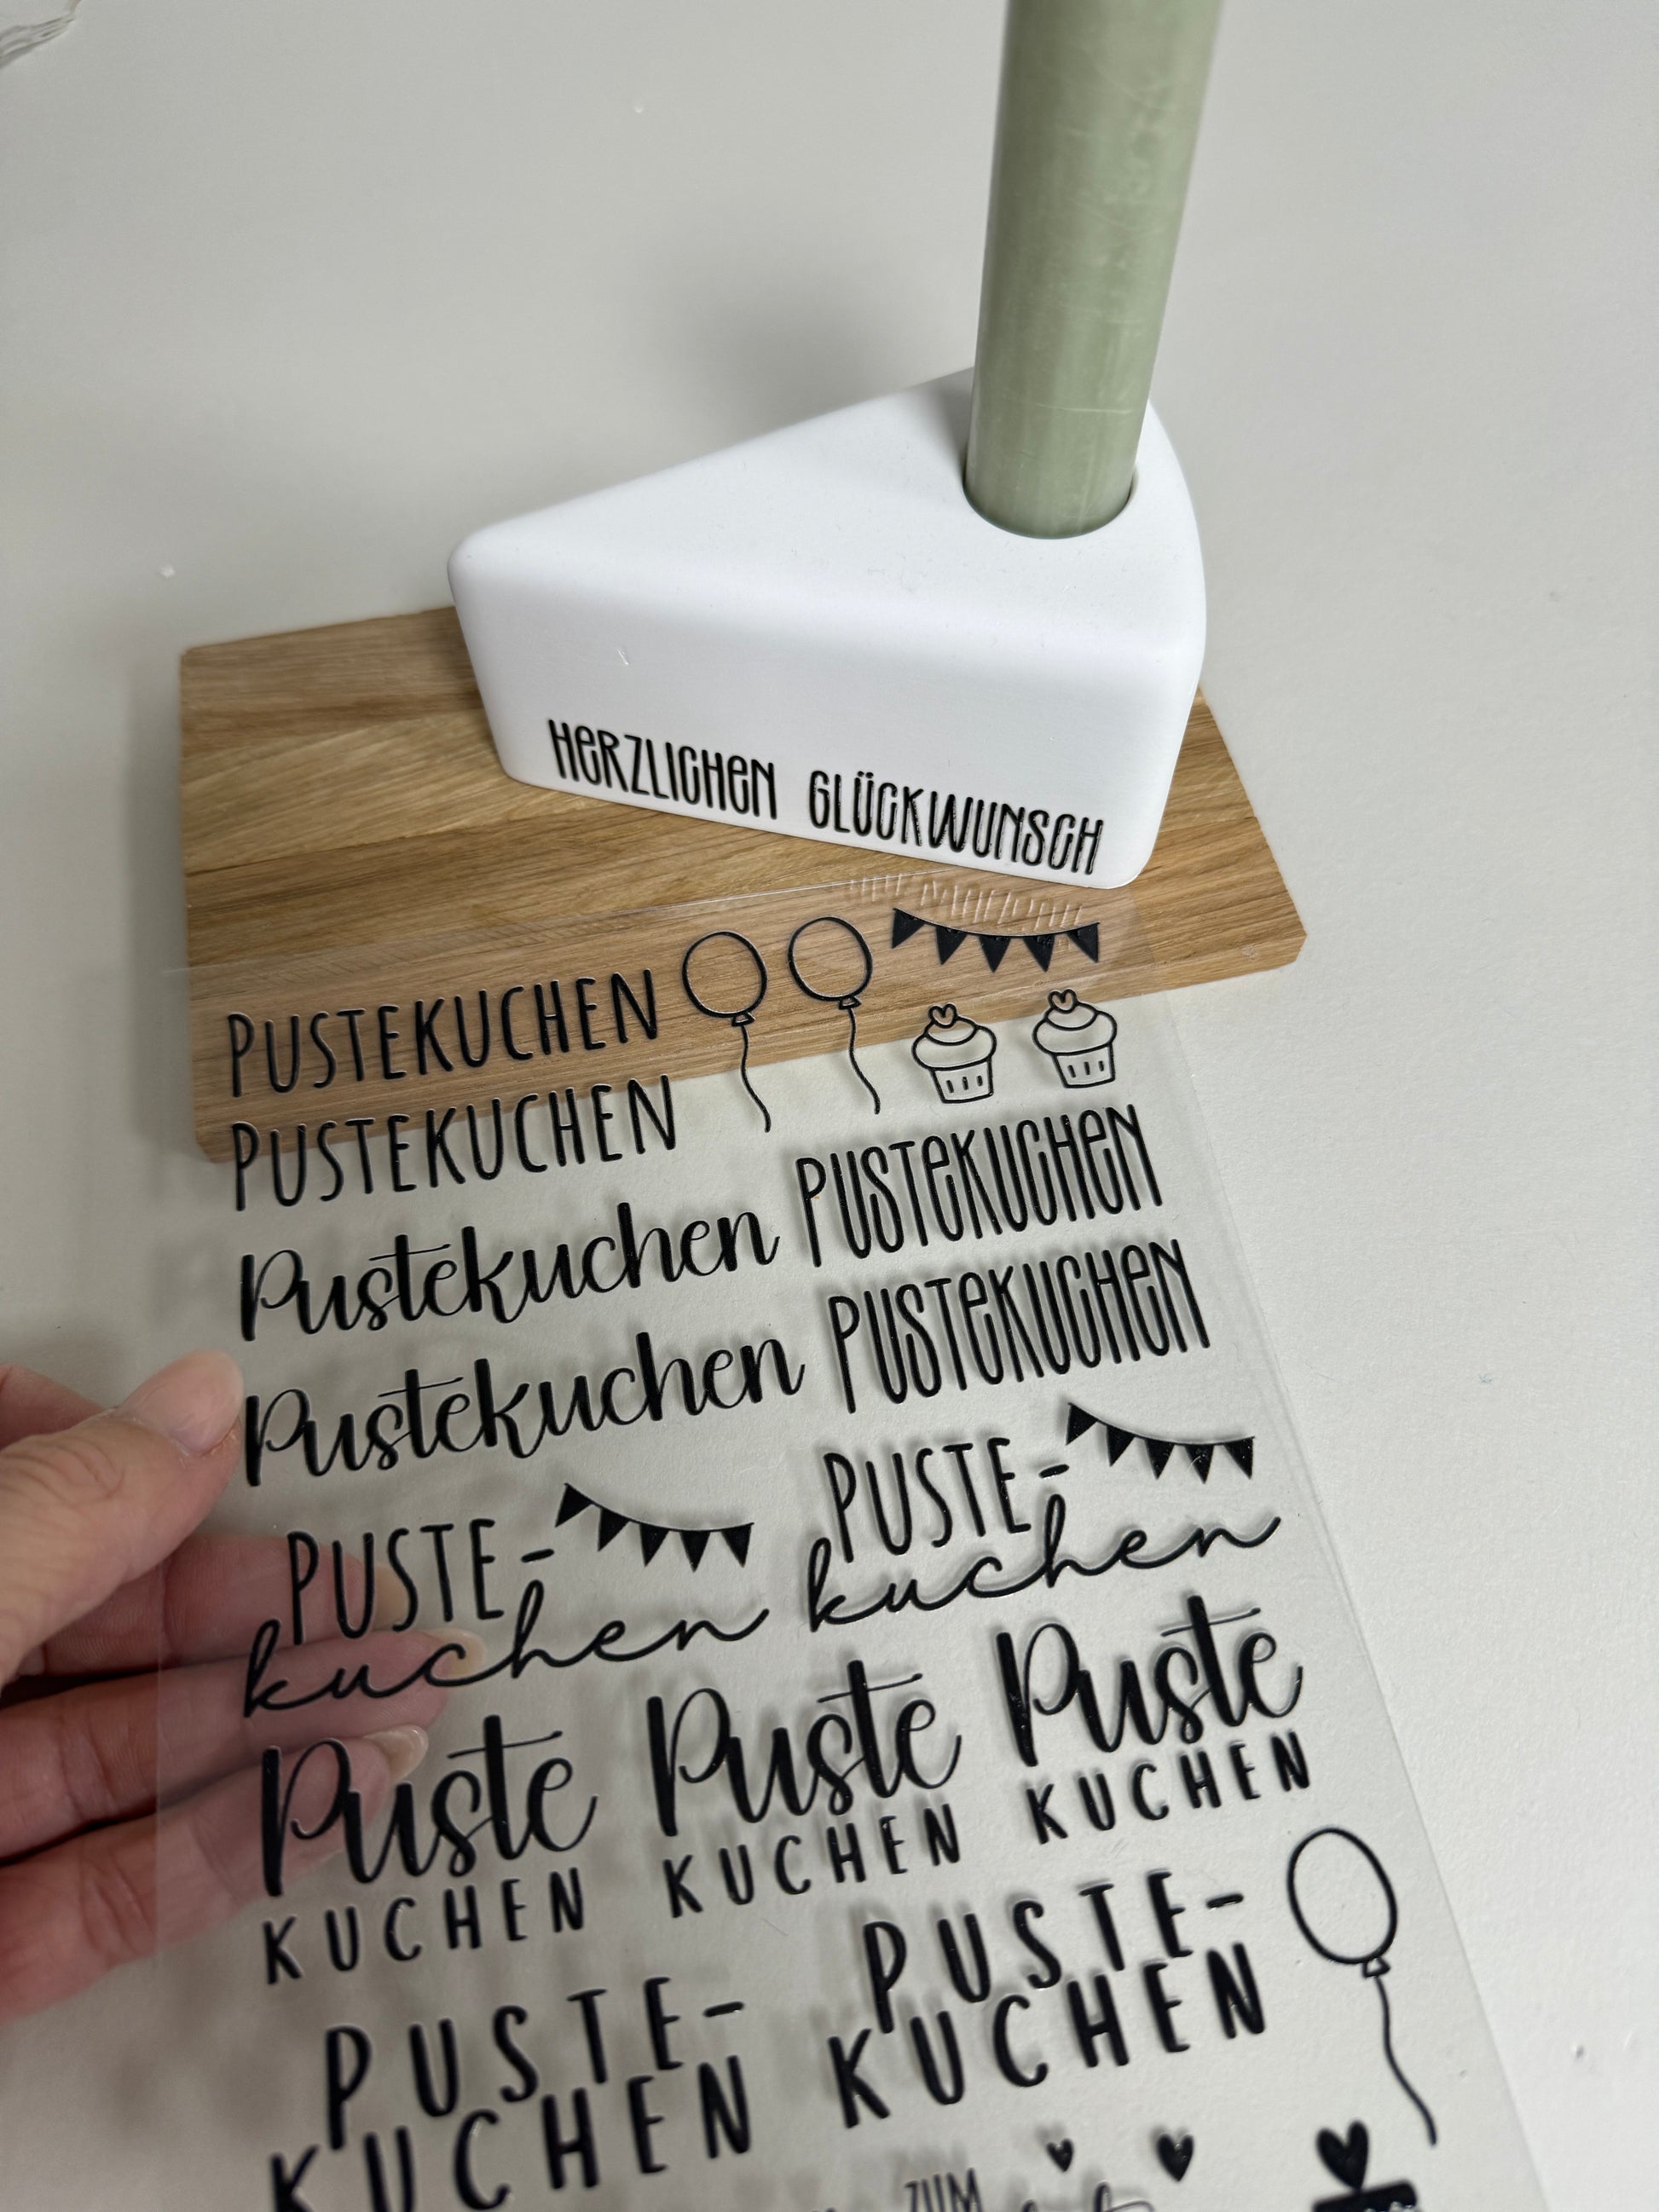 HERZLICHEN GLÜCKWUNSCH
PUSTEKUCHEN
PUSTEKUCHEN
Pustekuchen PUSTEKUCHEN
Pustekuchen PUSTEKUCHEN
PUSTE- PUSTE-
kuchen kuchen
Puste Puste Puste
KUCHEN KUCHEN KUCHEN
PUSTE- PUSTE-
KUCHEN KUCHEN
ZUM